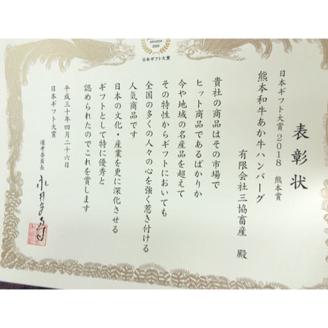 日本ギフト大賞
表彰状
日本ギフト大賞2018 熊本賞
熊本和牛あか牛ハンバーグ
有限会社 三協畜産 殿
貴社の商品はその市場で
ヒット商品であるばかりか
今や地域の名産品を超えて
その特性からギフトにおいても
全国の多くの人々の心を強く惹き付ける
人気商品です
日本の文化・産業を更に深化させる
ギフトとして特に優秀と
認められたのでこれを賞します
平成三十年四月二十六日
日本ギフト大賞
選考委員長